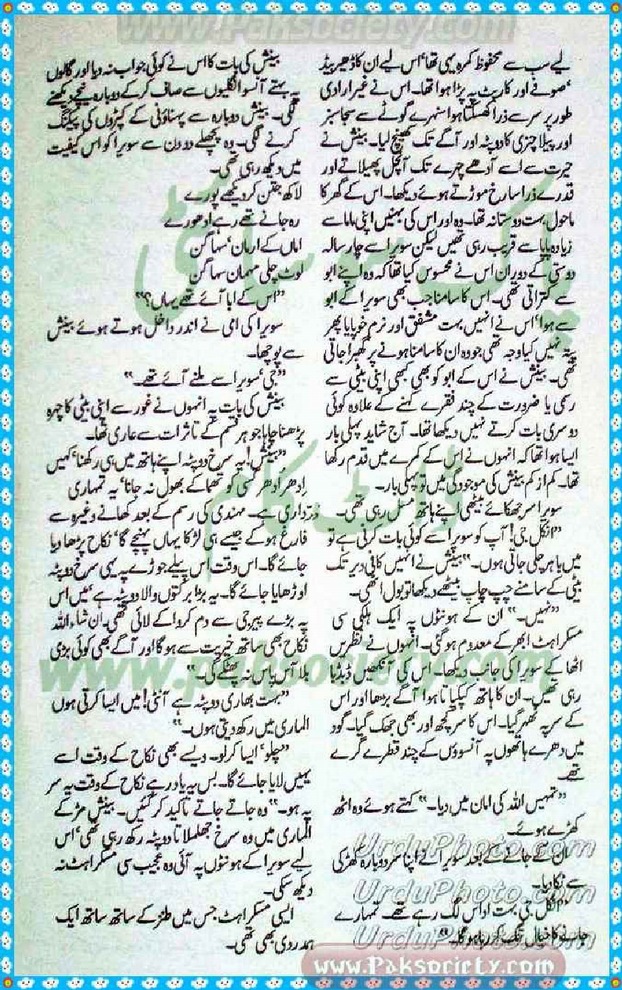 www.Paksociety.com
لیے سب سے محفوظ کمرہ یہی تھا‘ اس لیے ان کا ڈھیر بیڈ
صوفے اور کارپٹ پہ پڑا ہوا تھا۔ اس نے غیر ارادی
طور پر سر سے ذرا کھسکتا ہوا سنہرے گوٹے سے سجا سبز
اور پیلا چنری کا دوپٹہ اور آگے تک کھینچ لیا۔ بینش نے
حیرت سے اسے آدھے چہرے تک آنچل پھیلاتے اور
قدرے ذرا سا رخ موڑتے ہوئے دیکھا۔ اس کے گھر کا
ماحول بہت دوستانہ تھا۔ وہ اور اس کی بہنیں اپنی ماما سے
زیادہ پاپا سے قریب رہی تھیں لیکن سویرا سے چار سالہ
دوستی کے دوران اس نے محسوس کیا تھا کہ وہ اپنے ابو
سے کتراتی تھی۔ اس کا سامنا جب بھی سویرا کے ابو
سے ہوا‘ اس نے انہیں بہت مشفق اور نرم خو پایا پھر
پتہ نہیں کیا وجہ تھی جو وہ ان کا سامنا ہونے پر گھبرا جاتی
تھی۔ بینش نے اس کے ابو کو بھی کبھی اپنی بیٹی سے
رسمی یا ضرورت کے چند فقرے کہنے کے علاوہ کوئی
دوسری بات کرتے نہیں دیکھا تھا۔ آج شاید پہلی بار
ایسا ہوا تھا کہ انہوں نے اس کے کمرے میں قدم رکھا
تھا۔ کم از کم بینش کی موجودگی میں تو پہلی بار۔
سویرا سر جھکائے بیٹھی اپنے ہاتھ مسل رہی تھی۔
”انکل جی! آپ کو سویرا سے کوئی بات کرنی ہے تو
میں باہر چلی جاتی ہوں۔“ بینش نے انہیں کافی دیر تک
بیٹی کے سامنے چپ چاپ بیٹھے دیکھا تو بول اٹھی۔
”نہیں۔“ ان کے ہونٹوں پہ ایک ہلکی سی
مسکراہٹ ابھر کے معدوم ہو گئی۔ انہوں نے نظریں
اٹھا کے سویرا کی جانب دیکھا۔ اس کی آنکھیں ڈبڈبا
رہی تھیں۔ ان کا ہاتھ کپکپاتا ہوا آگے بڑھا اور اس
کے سر پہ ٹھہر گیا۔ اس کا سر کچھ اور بھی جھک گیا۔ گود
میں دھرے ہاتھوں پہ آنسوؤں کے چند قطرے گرے
تھے۔
”تمہیں اللہ کی امان میں دیا۔“ کہتے ہوئے وہ اٹھ
کھڑے ہوئے۔
ان کے جانے کے بعد سویرا نے اپنا سر دوبارہ کھڑکی
سے ٹکا دیا۔
”انکل جی بہت اداس لگ رہے تھے۔ تمہارے
جانے کا خیال تنگ کر رہا ہو گا۔“
بینش کی بات کا اس نے کوئی جواب نہ دیا اور گالوں
پہ بہتے آنسو انگلیوں سے صاف کر کے دوبارہ نیچے دیکھنے
لگی۔ بینش دوبارہ سے پہناؤنی کے کپڑوں کی پیکنگ
کرنے لگی۔ وہ پچھلے دو دن سے سویرا کو اس کیفیت
میں دیکھ رہی تھی۔
لاکھ جتن کر دیکھے پورے
رہ جانے تھے رہے ادھورے
اماں کے ارمان‘ سہاگن
لوٹ چلی مہمان سہاگن
”اس کے ابا آئے تھے یہاں؟“
سویرا کی امی نے اندر داخل ہوتے ہوئے بینش
سے پوچھا۔
”جی‘ سویرا سے ملنے آئے تھے۔“
بینش کی بات پہ انہوں نے غور سے اپنی بیٹی کا چہرہ
پڑھنا چاہا جو ہر قسم کے تاثرات سے عاری تھا۔
”بینش! یہ سرخ دوپٹہ اپنے ہاتھ میں ہی رکھنا‘ کہیں
اِدھر اُدھر کسی کو تھما کے بھول نہ جانا‘ یہ تمہاری
ذمہ داری ہے۔ مہندی کی رسم کے بعد کھانے وغیرہ سے
فارغ ہو کے جیسے ہی لڑکا یہاں پہنچے گا‘ نکاح پڑھا دیا
جائے گا۔ اس وقت اس پیلے جوڑے پہ یہی سرخ دوپٹہ
اوڑھایا جائے گا۔ یہ بڑا برکتوں والا دوپٹہ ہے‘ میں اس
پہ بڑے پیر جی سے دم کروا کے لائی تھی۔ ان شاء اللہ
نکاح بھی ساتھ خیریت سے ہو گا اور آگے بھی کوئی بڑی
بلا آس پاس نہ پھٹکے گی۔“
”بہت بھاری دوپٹہ ہے آنٹی! میں ایسا کرتی ہوں
الماری میں رکھ دیتی ہوں۔“
”چلو‘ ایسا کر لو۔ ویسے بھی نکاح کے وقت اسے
یہیں لایا جائے گا۔ بس یہ یاد رہے نکاح کے وقت یہ سر
پہ ہو۔“ وہ جاتے جاتے تاکید کر گئیں۔ بینش مڑ کے
الماری میں وہ سرخ جھلملاتا دوپٹہ رکھ رہی تھی‘ اس
لیے سویرا کے ہونٹوں پہ آئی وہ عجیب سی مسکراہٹ نہ
دیکھ سکی۔
ایسی مسکراہٹ جس میں طنز کے ساتھ ساتھ ایک
ہمدردی بھی تھی۔
پاک سوسائٹی
ڈاٹ کام
www.paksociety.com
UrduPhoto.com
UrduPhoto.com
UrduPhoto.com
www.Paksociety.com